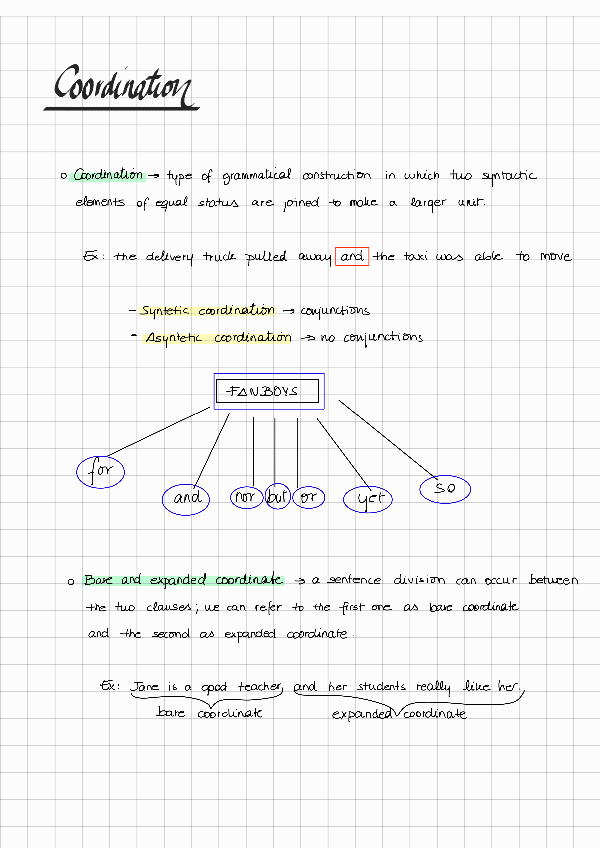 Coordination
Coordination → type of grammatical construction in which two syntactic
elements of equal status are joined to make a larger unit.
Ex: the delivery truck pulled away and the taxi was able to move
- Syntetic coordination → conjunctions
- Asyntetic coordination → no conjunctions
FANBOYS
for and nor but or yet so
Bare and expanded coordinate → a sentence division can occur between
the two clauses; we can refer to the first one as bare coordinate
and the second as expanded coordinate.
Ex: Jane is a good teacher, and her students really like her.
bare coordinate expanded coordinate